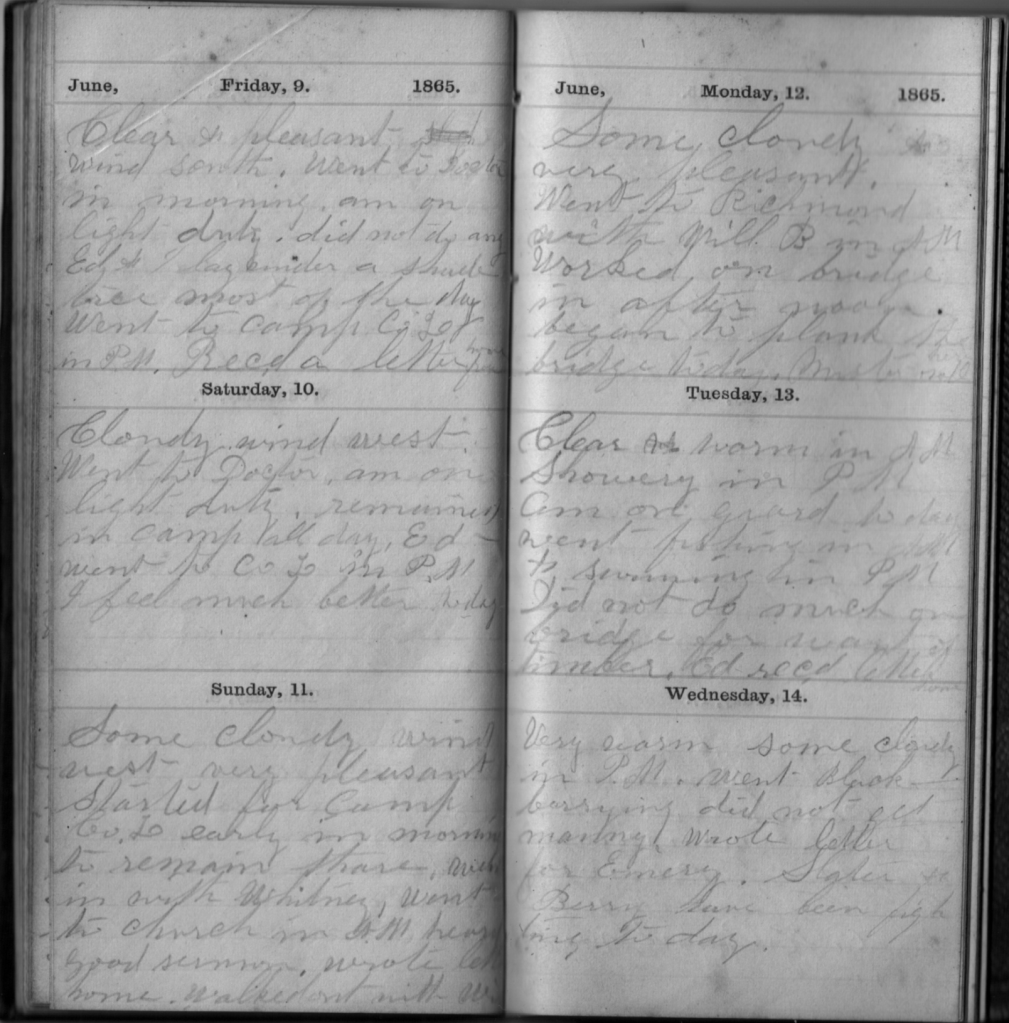 June, Friday, 9. 1865.
Clear & pleasant
wind south. Went to Doctor
in morning. am on
light duty. did not do any
Ed & I lay under a shade
tree most of the day
Went to camp Co L
in P.M. Recd a letter from
Saturday, 10.
Cloudy wind west.
Went to Doctor, am on
light duty. remained
in camp all day, Ed
went to Co L in P.M
I feel much better today
Sunday, 11.
Some cloudy wind
west very pleasant
Started for Camp
Co. L early in morning
to remain thare, went
in with Whitney, Went
to church in A.M. heard
good sermon. wrote let
home. Walked out with W
June, Monday, 12. 1865.
Some cloudy &
very pleasant.
Went to Richmond
with Will B in A M
Worked on bridge
in after noon.
began to plank the
bridge today.
Tuesday, 13.
Clear warm in A M
Showery in P M
Am on guard to day
went fishing in A M
swiming in P M
Did not do much on
bridge for want of
timber. Ed recd letter
home
Wednesday, 14.
Very warm some cloudy
in P.M. went Black-
barrying did not get
manny, wrote letter
for Emery. Slater &
Berry have been figh
ting To day.